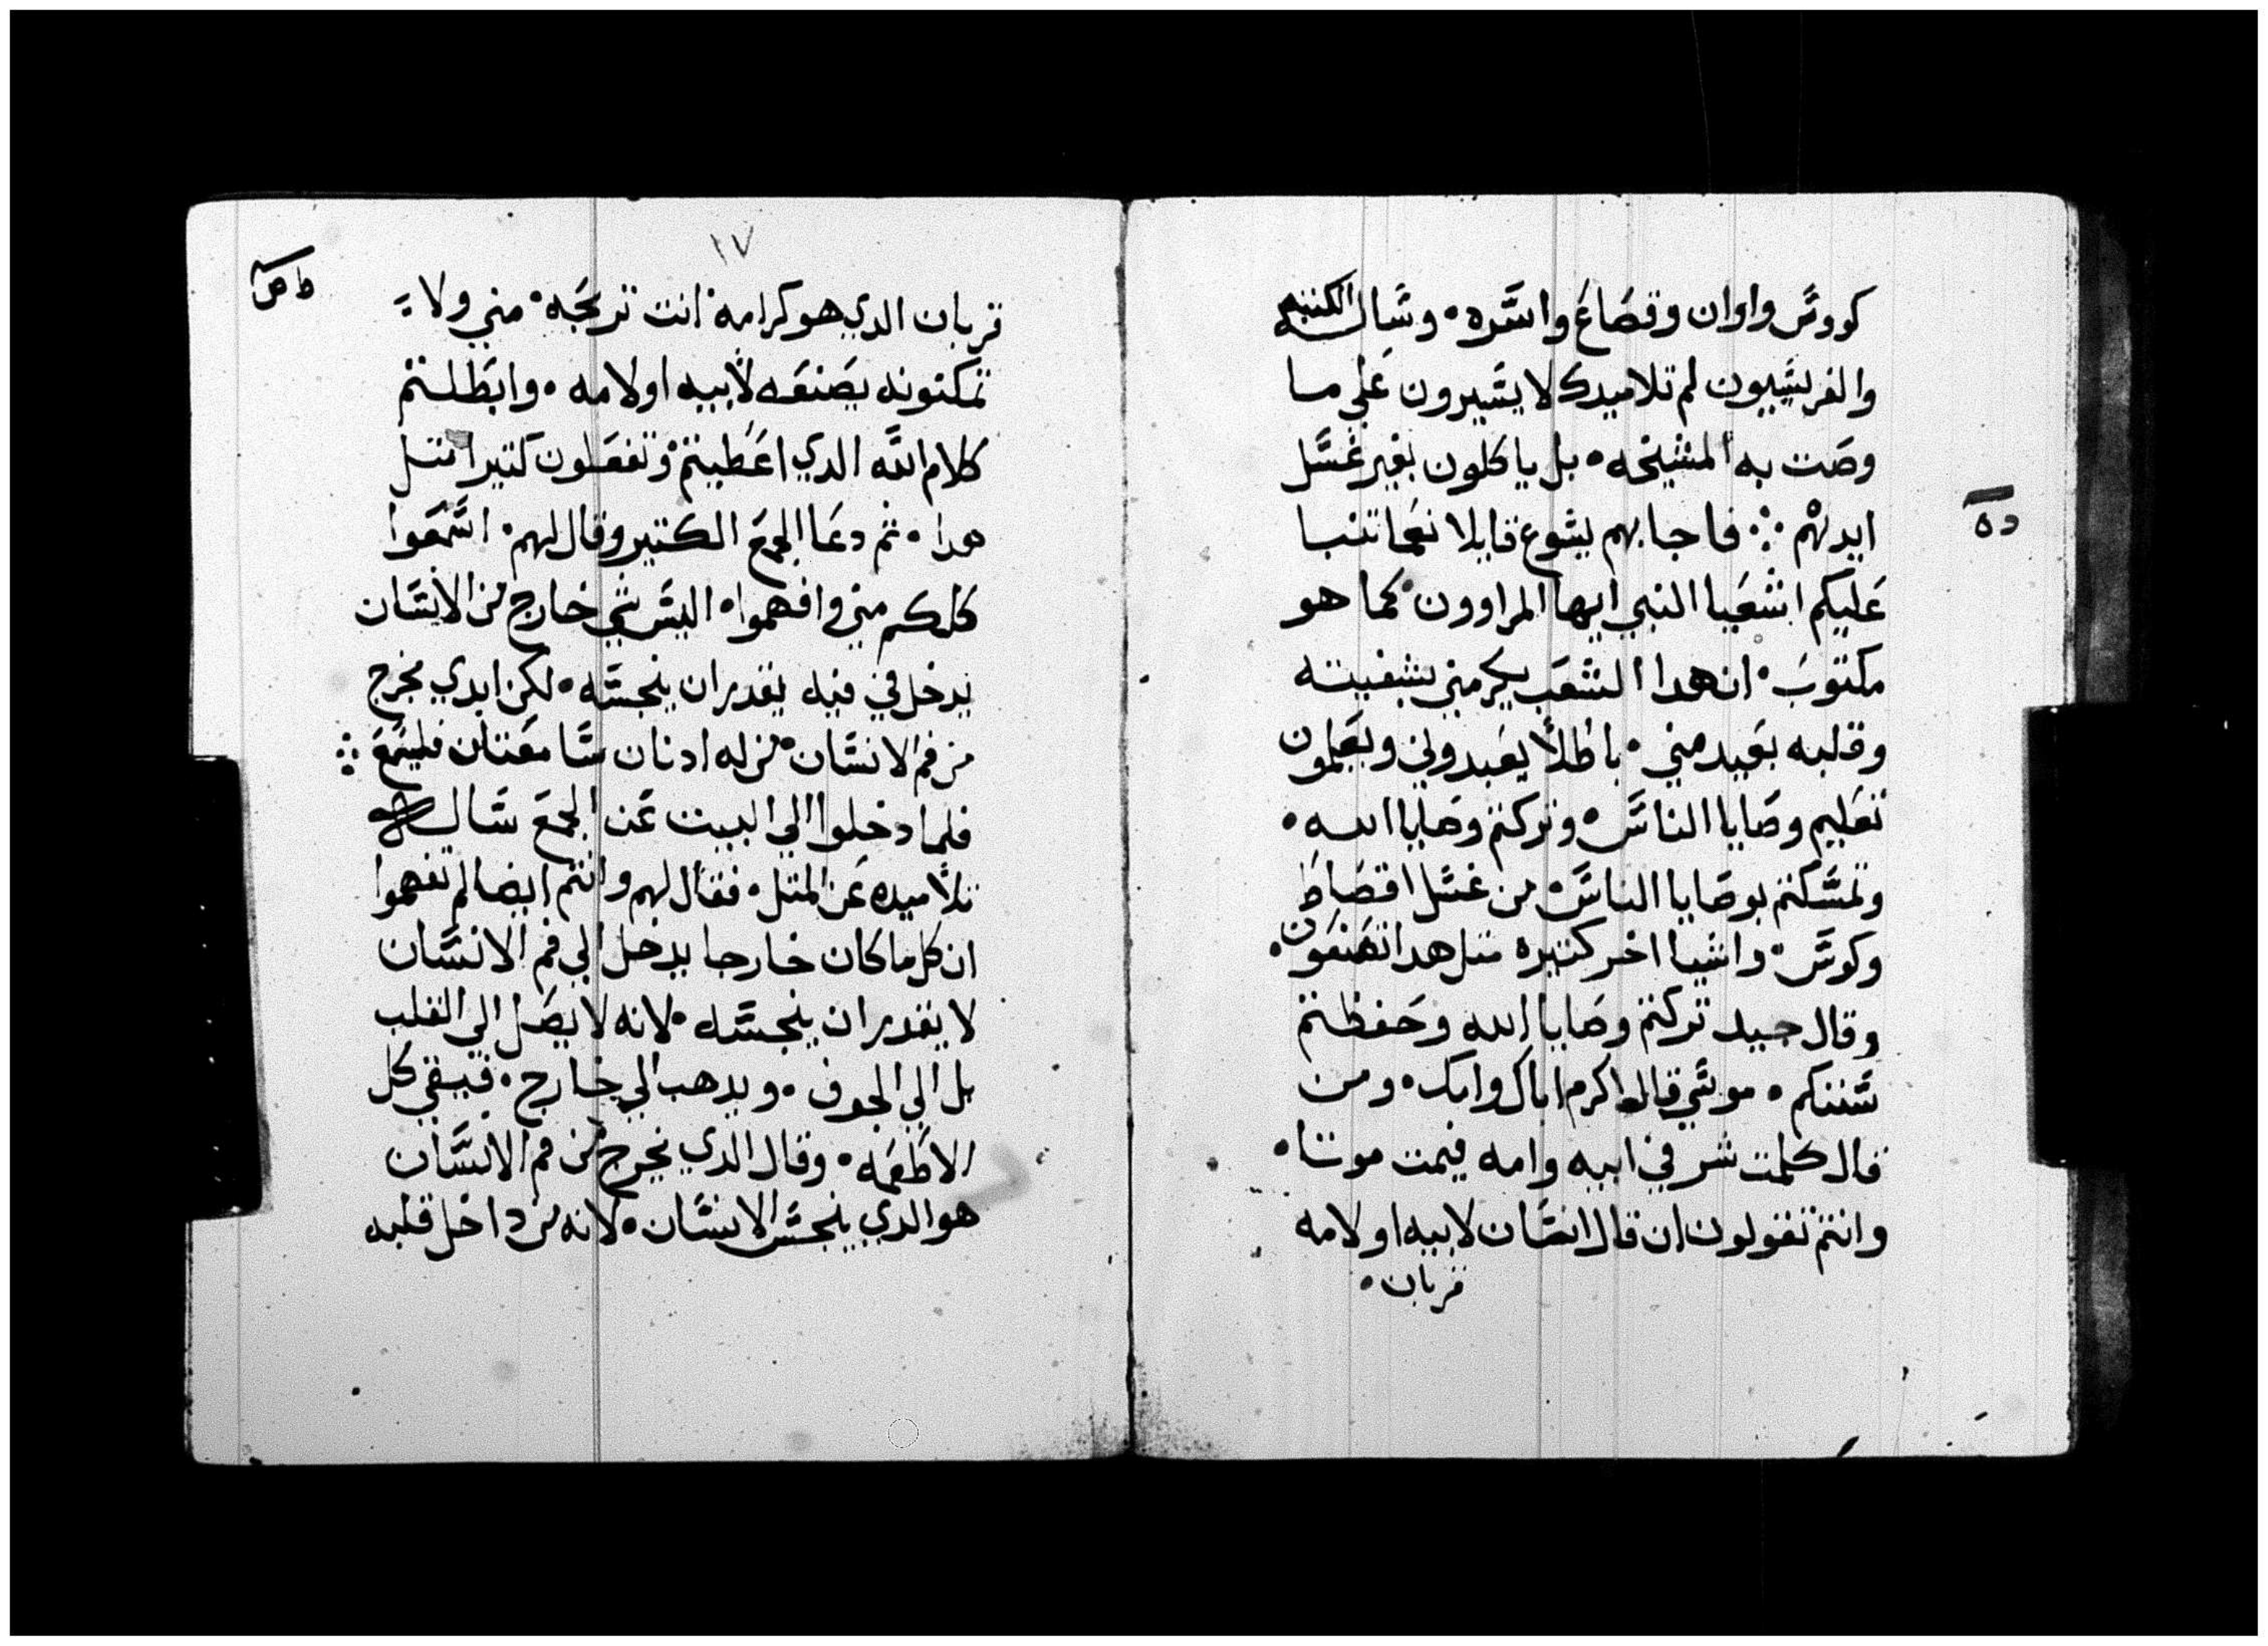 كووس واوان وقصاع واسره • وساله الكتبه
والفريسيون لم تلاميدك لا يسيرون علي ما
وصت به المشيخه • بل ياكلون بغير غسل
ايديهم ∴ فاجابهم يشوع قايلا نعما تنبا
عليكم اشعيا النبي ايها المراوون • كما هو
مكتوب • ان هدا الشعب يكرمني بشفيته
وقلبه بعيد مني • باطلا يعبدوني ويعلمون
تعليم وصايا الناس • وتركتم وصايا الله •
وتمسكتم بوصايا الناس • من غسل اقصاط
وكوس • واشيا اخر كتيره متل هدا تصنعون •
وقال جيد تركتم وصايا الله وحفظتم
سننكم • موسي قال اكرم اباك وامك • ومن
قال كلمت شر في ابيه وامه فيمت موتا •
وانتم تقولون ان قال انسان لابيه او لامه
قربان •
ده
١٧
ط ص
قربان الدي هو كرامه • انت تربحه • مني ولا
تمكنونه يصنعه لابيه او لامه • وابطلتم
كلام الله الدي اعطيتم وتفعلون كتيرا متل
هدا • تم دعا الجمع الكتير وقال لهم • اسمعوا
كلكم مني وافهموا • اليس شي خارج من الانسان
يدخل في فيه يقدر ان ينجسه • لكن ايدي يخرج
من فم الانسان • من له ادنان سامعتان فليسمع ∴
فلما دخلوا الي البيت عن الجمع ساله
تلاميده عن المتل • فقال لهم وانتم ايضا لم تفهموا
ان كل ما كان خارجا يدخل الي فم الانسان
لا يقدر ان ينجسه • لانه لا يصل الي القلب
بل الي الجوف • ويدهب الي خارج • فينقي كل
الاطعمه • وقال الدي يخرج من فم الانسان
هو الدي ينجس الانسان • لانه من داخل قلبه